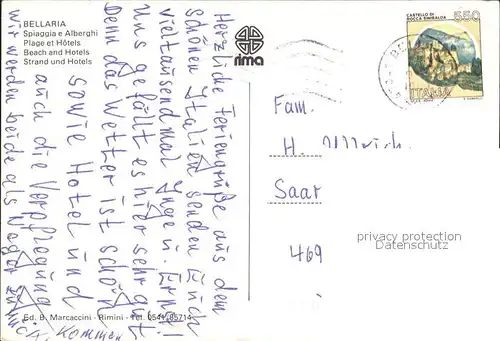 BELLARIA
Spiaggia e Alberghi
Plage et Hôtels
Beach and Hotels
Strand und Hotels
rima
CASTELLO DI
ROCCA SINIBALDA
550
ITALIA
Herzliche Feriengrüße aus dem
schönen Italien senden Euch
vieltausendmal Inge u. Ernst!
Uns gefällt es hier sehr gut
Denn das Wetter ist schön
sowie Hotel und
auch die Verpflegung
wir werden beide als
kommen
Fam.
H. Ullrich
Saar
469
privacy protection
Datenschutz
Ed. B. Marcaccini - Rimini - Tel. 0541-85714